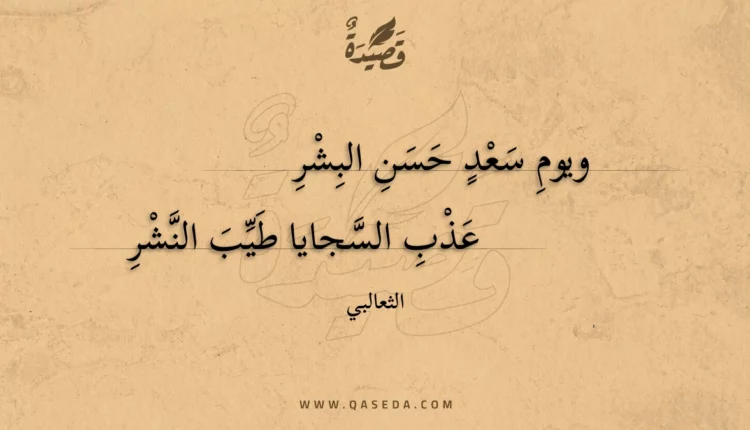 قَصِيْدَةٌ
ويومِ سَعْدٍ حَسَنِ البِشْرِ
عَذْبِ السَّجايا طَيِّبَ النَّشْرِ
الثعالبي
WWW.QASEDA.COM